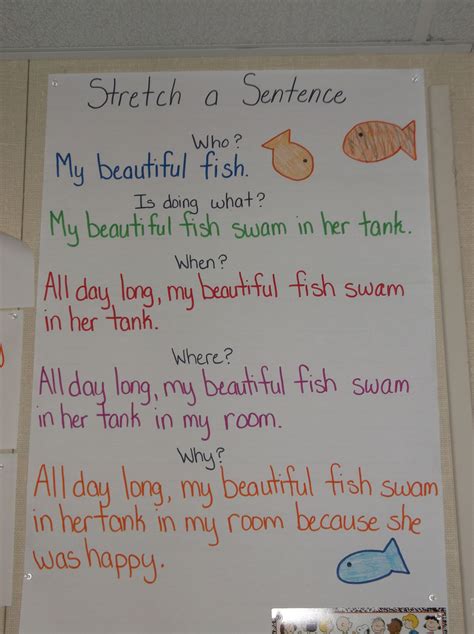 Stretch a Sentence
Who?
My beautiful fish.
Is doing what?
My beautiful fish swam in her tank.
When?
All day long, my beautiful fish swam
in her tank.
Where?
All day long, my beautiful fish swam
in her tank in my room.
Why?
All day long, my beautiful fish swam
in her tank in my room because she
was happy.